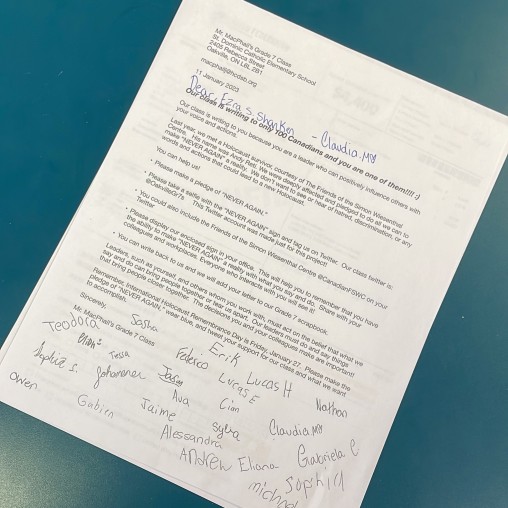 Mr. MacPhail's Grade 7 Class
St. Dominic Catholic Elementary School
2405 Rebecca Street
Oakville, ON L6L 2B1
macphailj@hcdsb.org
11 January 2023
Dear, Ezra S. Shanken - Claudia.MY
Our class is writing to only 100 Canadians and you are one of them!!!! :)
Our class is writing to you because you are a leader who can positively influence others with
your voice and actions.
Last year, we met a Holocaust survivor, courtesy of The Friends of the Simon Wiesenthal
Centre. His name was Andy Réti. We were deeply affected and pledged to do all we can to
make "NEVER AGAIN" a reality. We don't want to see or hear of hatred, discrimination, or any
words and actions that could lead to a new Holocaust.
You can help us!
• Please make a pledge of "NEVER AGAIN."
• Please take a selfie with the "NEVER AGAIN" sign and tag us on Twitter. Our class twitter is:
@OakvilleGr7s This Twitter account was made just for this project!
• You could also include the Friends of the Simon Wiesenthal Centre @CanadianFSWC on your
Twitter
• Please display our enclosed sign in your office. This will help you to remember that you have
the ability to make "NEVER AGAIN" a reality with what you say and do. Share with your
colleagues and workplaces. Everyone who interacts with you will see it!
• You can write back to us and we will add your letter to our Grade 7 scrapbook.
Leaders, such as yourself, and others whom you work with, must act on the belief that what we
say and do can bring people together or tear us apart. Our leaders must do and say things
that bring people closer together. The decisions you and your colleagues make are important!
Remember, International Holocaust Remembrance Day is Friday, January 27. Please make the
pledge of "NEVER AGAIN", wear blue, and tweet your support for our class and what we want
to accomplish.
Sincerely,
Mr. MacPhail's Grade 7 Class
Teodora Sasha
Tessa Federico Erik
Sophie S. Johannes Lucas E Lucas H Nathan
Owen Ava Cian
Gabien Jaime Sylva Claudia MY
Alessandra
Andrew Eliana Gabriela C
Michael Sophill